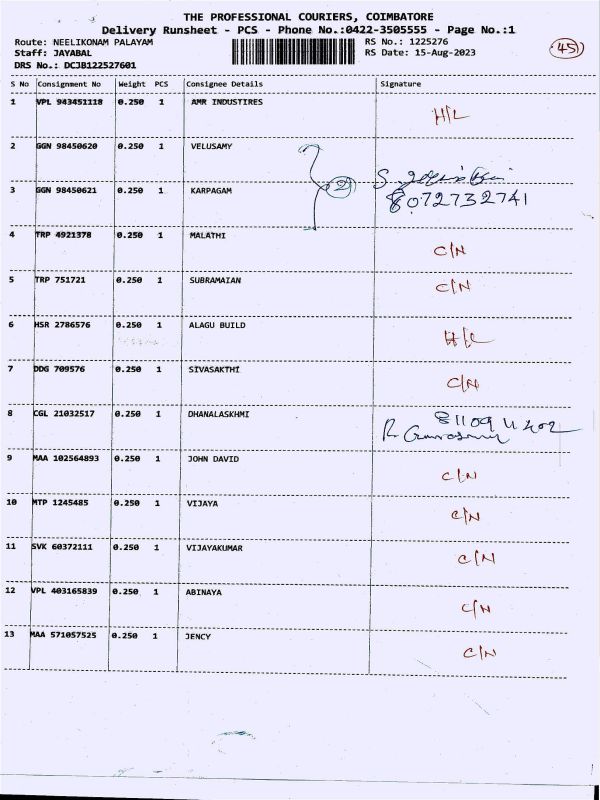 THE PROFESSIONAL COURIERS, COIMBATORE
Delivery Runsheet - PCS - Phone No.:0422-3505555 - Page No.:1
Route: NEELIKONAM PALAYAM RS No.: 1225276
Staff: JAYABAL RS Date: 15-Aug-2023 45
DRS No.: DCJB122527601
S No Consignment No Weight PCS Consignee Details Signature
1 VPL 943451118 0.250 1 AMR INDUSTIRES H/L
2 GGN 98450620 0.250 1 VELUSAMY
3 GGN 98450621 0.250 1 KARPAGAM 2 8072732741
4 TRP 4921378 0.250 1 MALATHI C/N
5 TRP 751721 0.250 1 SUBRAMAIAN C/N
6 HSR 2786576 0.250 1 ALAGU BUILD H/L
7 DDG 709576 0.250 1 SIVASAKTHI C/N
8 CGL 21032517 0.250 1 DHANALASKHMI
9 MAA 102564893 0.250 1 JOHN DAVID C/N
10 MTP 1245485 0.250 1 VIJAYA C/N
11 SVK 60372111 0.250 1 VIJAYAKUMAR C/N
12 VPL 403165839 0.250 1 ABINAYA C/N
13 MAA 571057525 0.250 1 JENCY C/N